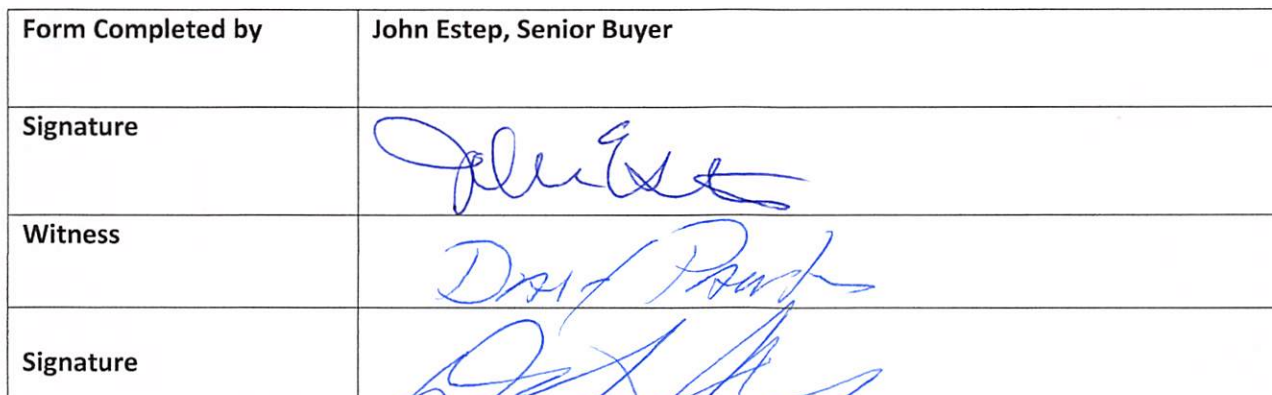 Form Completed by John Estep, Senior Buyer
Signature John Estep
Witness
Signature